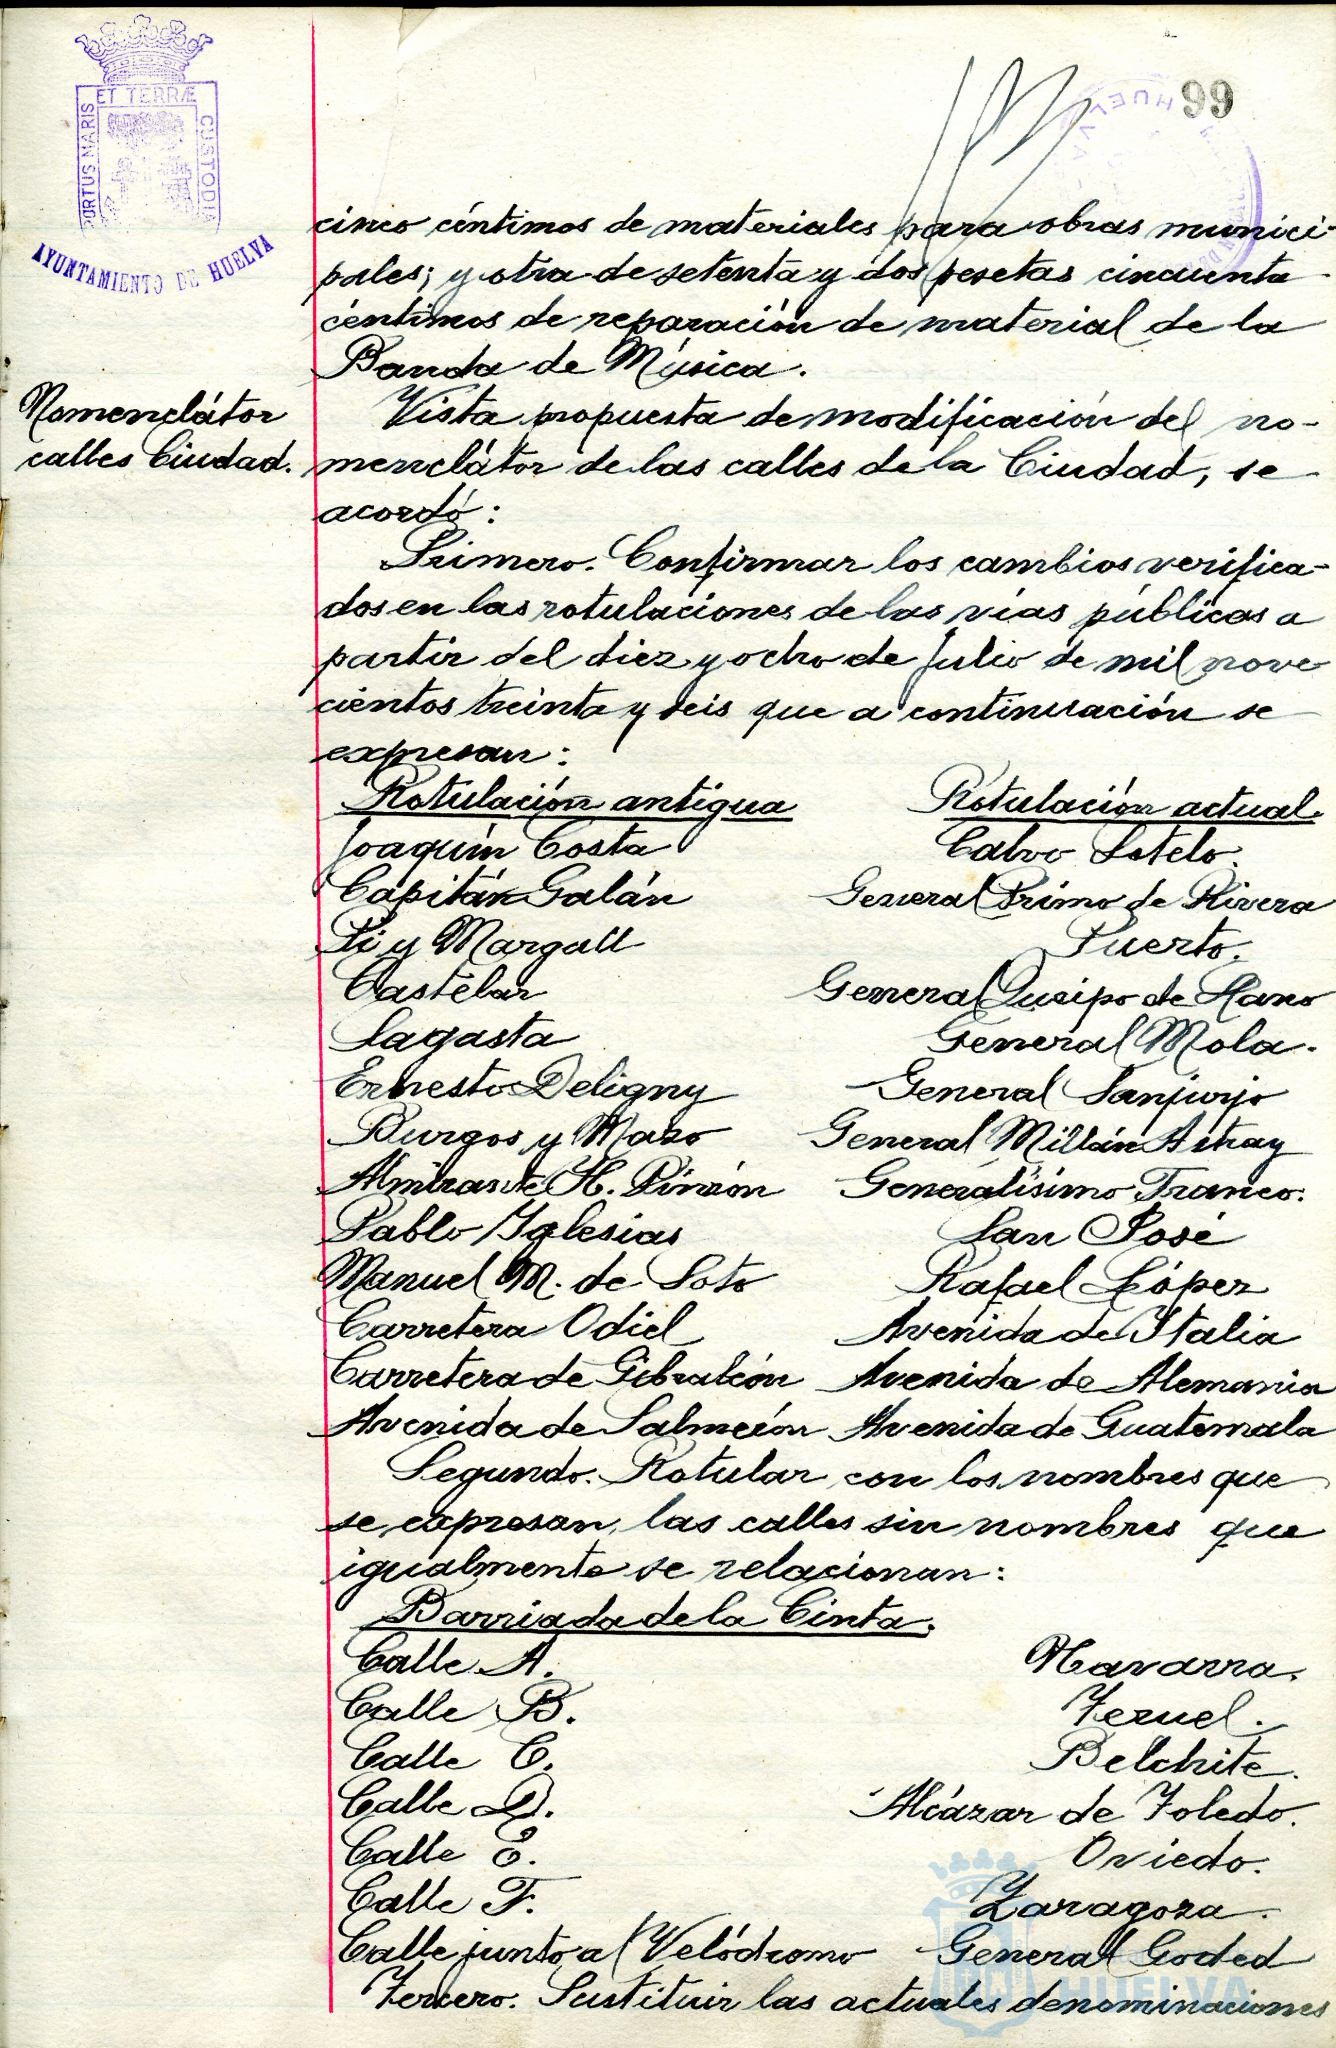 99
PORTUS MARIS
ET TERRÆ
CUSTODIA
AYUNTAMIENTO DE HUELVA
HUELVA
cinco céntimos de materiales para obras munici-
pales; y otra de setenta y dos pesetas cincuenta
céntimos de reparación de material de la
Banda de Música.
Nomenclátor
calles Ciudad.
Vista propuesta de modificación del no-
menclátor de las calles de la Ciudad, se
acordó:
Primero. Confirmar los cambios verifica-
dos en las rotulaciones de las vías públicas a
partir del diez y ocho de Julio de mil nove
cientos treinta y seis que a continuación se
expresan:
Rotulación antigua Rotulación actual.
Joaquín Costa Calvo Sotelo.
Capitán Galán General Primo de Rivera
Pi y Margall Puerto.
Castelar General Queipo de Llano
Sagasta General Mola.
Ernesto Deligny General Sanjurjo
Burgos y Mazo General Millán Astray
Almirante H. Pinzón Generalísimo Franco.
Pablo Iglesias San José
Manuel M. de Soto Rafael López
Carretera Odiel Avenida de Italia
Carretera de Gibraleón Avenida de Alemania
Avenida de Salmerón Avenida de Guatemala
Segundo. Rotular con los nombres que
se expresan, las calles sin nombres que
igualmente se relacionan:
Barriada de la Cinta.
Calle A. Navarra.
Calle B. Teruel.
Calle C. Belchite.
Calle D. Alcázar de Toledo.
Calle E. Oviedo.
Calle F. Zaragoza.
Calle junto al Velódromo General Goded
Tercero. Sustituir las actuales denominaciones
HUELVA